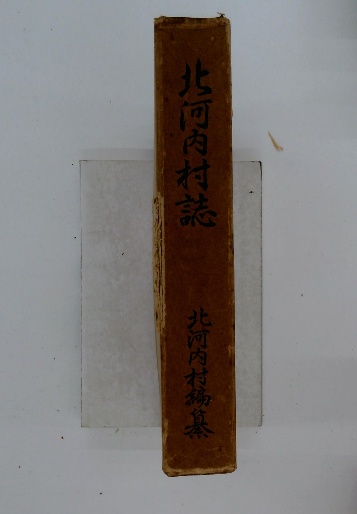 北河内村誌
北河内村編纂